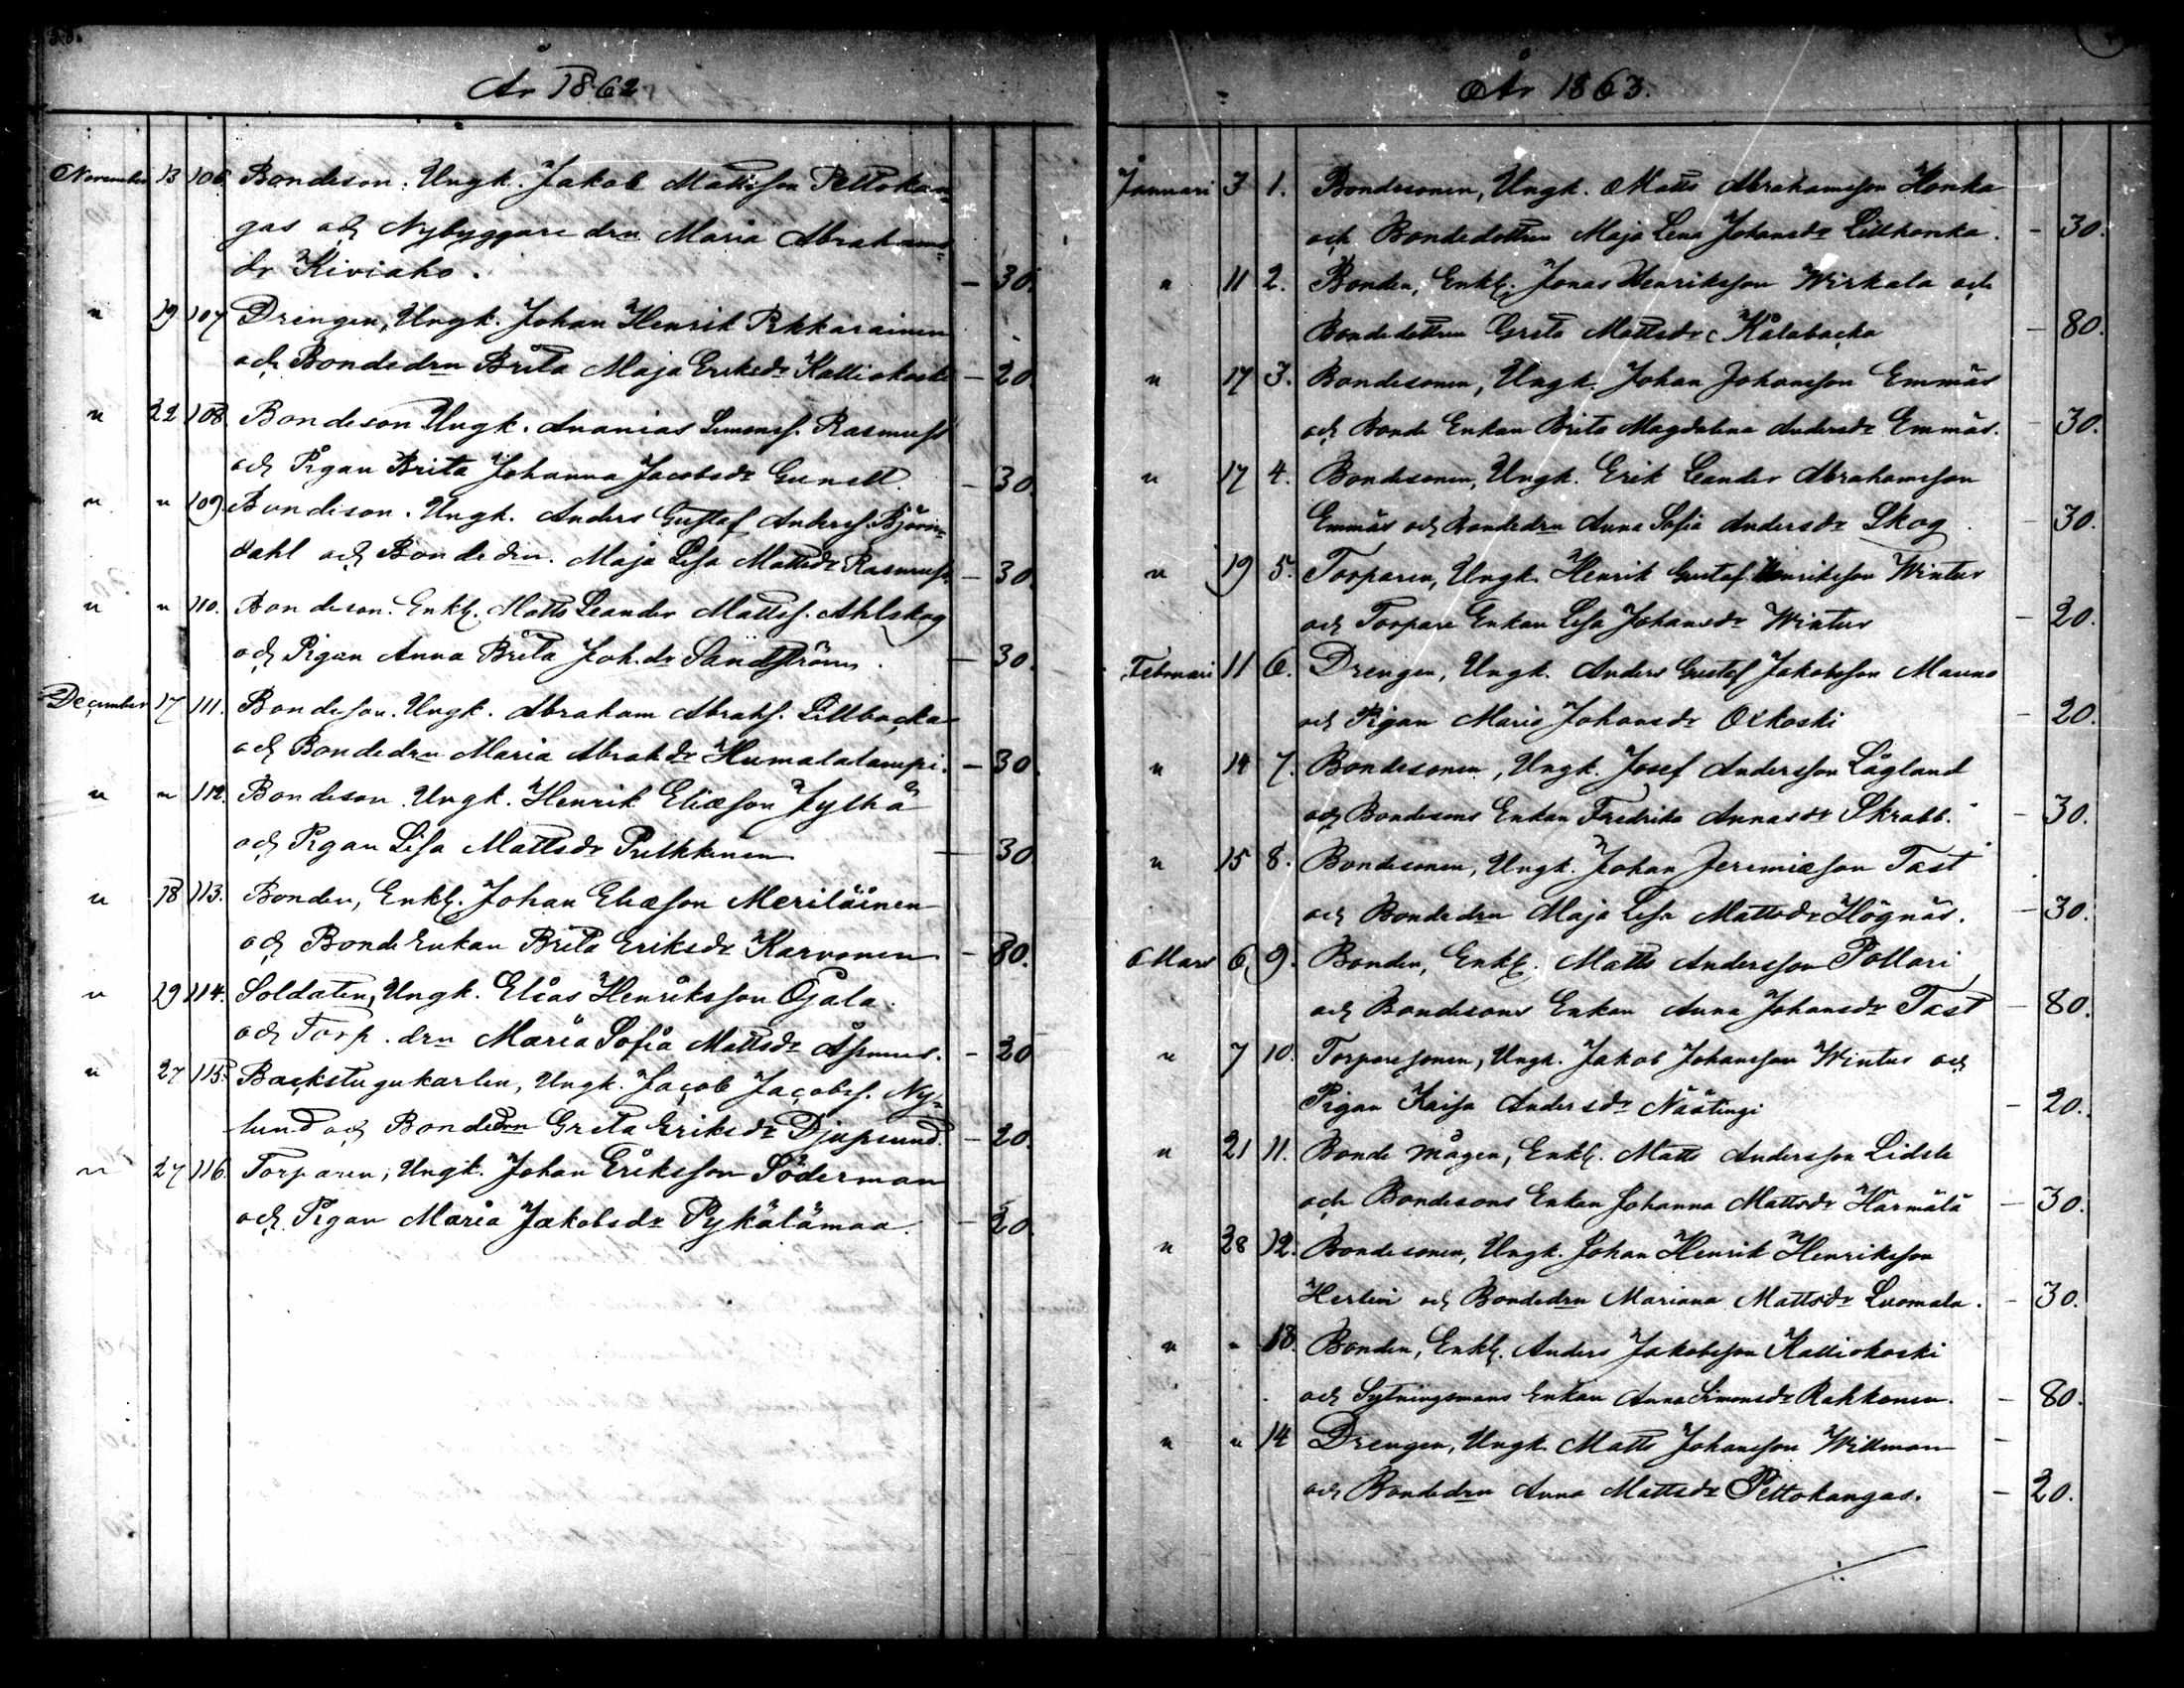 År 1862
November 13 106. Bondeson. Ungk. Jakob Mattsson Pettokan-
gas och Nybyggare drn Maria Abrahams-
dr Kiviaho. - 30.
" 19 107 Drengen, Ungk. Johan Henrik Pekkarainen
och Bondedrn Brita Maja Eriksdr Kalliokoski - 20.
" 22 108. Bondeson Ungk. Ananias Simonss. Rasmuss
och Pigan Brita Johanna Jacobsdr Gunell. - 30.
" " 109 Bondeson. Ungk. Anders Gustaf Anderss. Björn-
dahl och Bondedrn. Maja Lisa Mattsdr Rasmuss. - 30.
" " 110. Bondeson. Enkl. Matts Leander Mattss. Ahlskog
och Pigan Anna Brita Joh.dr Sandström. - 30.
December 17 111. Bondeson. Ungk. Abraham Abrahs. Lillbacka
och Bondedrn Maria Abrahdr Humalalampi. - 30.
" " 112. Bondeson. Ungk. Henrik Eliasson Jylhä
och Pigan Lisa Mattsdr Pulkkinen - 30
" 18 113. Bonden, Enkl. Johan Eliasson Meriläinen
och Bonde Enkan Brita Eriksdr Karvonen - 80.
" 29 114. Soldaten, Ungk. Elias Henriksson Ojala.
och Torp. drn Maria Sofia Mattsdr Åsmus. - 20
" 27 115. Backstugukarlen, Ungk. Jacob Jacobss. Ny-
lund och Bondedrn Greta Eriksdr Djupsund. - 20.
" 27 116. Torparen, Ungk. Johan Eriksson Söderman
och Pigan Maria Jakobsdr Pykälämaa. - 20.
År 1863.
Januari 3 1. Bondesonen, Ungk. Matts Abrahamsson Honka
och Bondedottren Maja Lena Johansdr Lillhonka. - 30.
" 11 2. Bonden, Enkl. Jonas Henriksson Wirkala och
Bondedottren Greta Mattsdr Kålabacka - 80.
" 17 3. Bondesonen, Ungk. Johan Johansson Emmäs
och Bonde Enkan Brita Magdalena Andersdr Emmäs. - 30.
" 17 4. Bondesonen, Ungk. Erik Leander Abrahamsson
Emmäs och Bondedrn Anna Sofia Andersdr Skog. - 30.
" 19 5. Torparen, Ungk. Henrik Gustaf Henriksson Winter
och Torpare Enkan Lisa Johansdr Winter - 20.
Februari 11 6. Drengen, Ungk. Anders Gustaf Jakobsson Mauno
och Pigan Maria Johansdr Oikoski - 20.
" 14 7. Bondesonen, Ungk. Josef Andersson Lågland
och Bondesons Enkan Fredrika Annasdr Skrabb. - 30.
" 15 8. Bondesonen, Ungk. Johan Jeremiasson Tast
och Bondedrn Maja Lisa Mattsdr Högnäs. - 30.
Mars 6 9. Bonden, Enkl. Matts Andersson Pollari
och Bondesons Enkan Anna Johansdr Tast - 80.
" 7 10. Torparesonen, Ungk. Jakob Johansson Winter och
Pigan Kaisa Andersdr Näätingi - 20.
" 21 11. Bonde mågen, Enkl. Matts Andersson Lidsle
och Bondesons Enkan Johanna Mattsdr Härmälä - 30.
" 28 12. Bondesonen, Ungk. Johan Henrik Henriksson
Herlevi och Bondedrn Mariana Mattsdr Luomala. - 30.
" " 13. Bonden, Enkl. Anders Jakobsson Kalliokoski
och Sytningsmans Enkan Anna Simonsdr Rahkonen. - 80.
" " 14 Drengen, Ungk. Matts Johansson Willman -
och Bondedrn Anna Mattsdr Pettokangas. - 20.